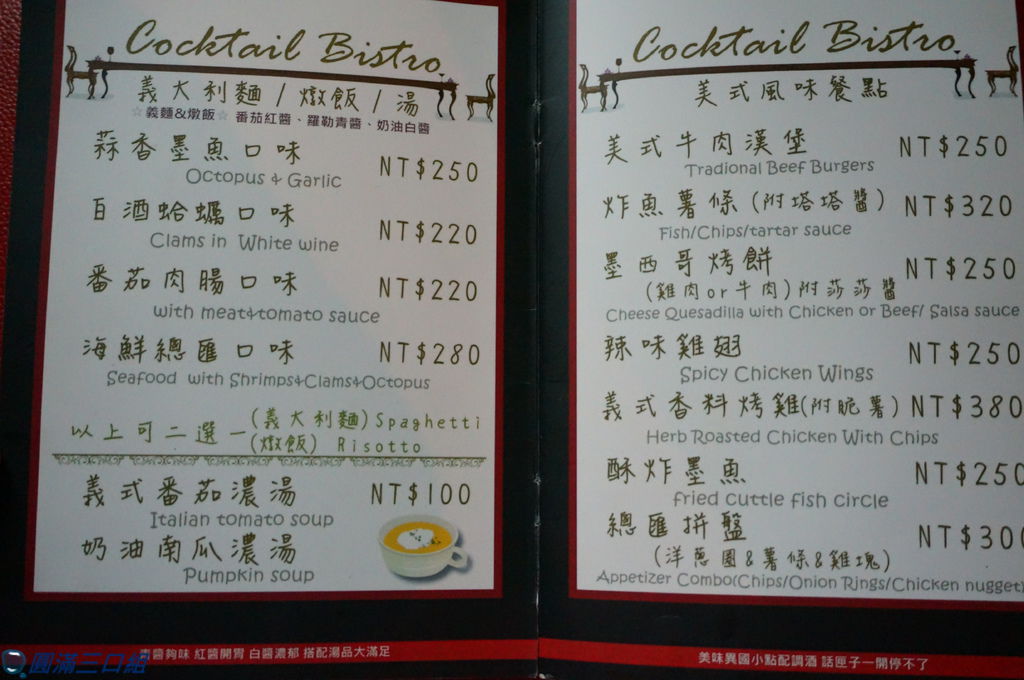 Cocktail Bistro
義大利麵 / 燉飯 / 湯
☆義麵&燉飯☆ 番茄紅醬、羅勒青醬、奶油白醬
蒜香墨魚口味 NT$250
Octopus & Garlic
白酒蛤蠣口味 NT$220
Clams in White wine
番茄肉腸口味 NT$220
with meat&tomato sauce
海鮮總匯口味 NT$280
Seafood with Shrimps&Clams&Octopus
以上可二選一 (義大利麵) Spaghetti
(燉飯) Risotto
義式番茄濃湯 NT$100
Italian tomato soup
奶油南瓜濃湯
Pumpkin soup
青醬夠味 紅醬開胃 白醬濃郁 搭配湯品大滿足
圓滿三口組
Cocktail Bistro
美式風味餐點
美式牛肉漢堡 NT$250
Tradional Beef Burgers
炸魚薯條 (附塔塔醬) NT$320
Fish/Chips/tartar sauce
墨西哥烤餅 NT$250
(雞肉or牛肉) 附莎莎醬
Cheese Quesadilla with Chicken or Beef/ Salsa sauce
辣味雞翅 NT$250
Spicy Chicken Wings
義式香料烤雞(附脆薯) NT$380
Herb Roasted Chicken With Chips
酥炸墨魚 NT$250
fried cuttle fish circle
總匯拼盤 NT$300
(洋蔥圈&薯條&雞塊)
Appetizer Combo(Chips/Onion Rings/Chicken nugget)
美味異國小點配調酒 話匣子一開停不了